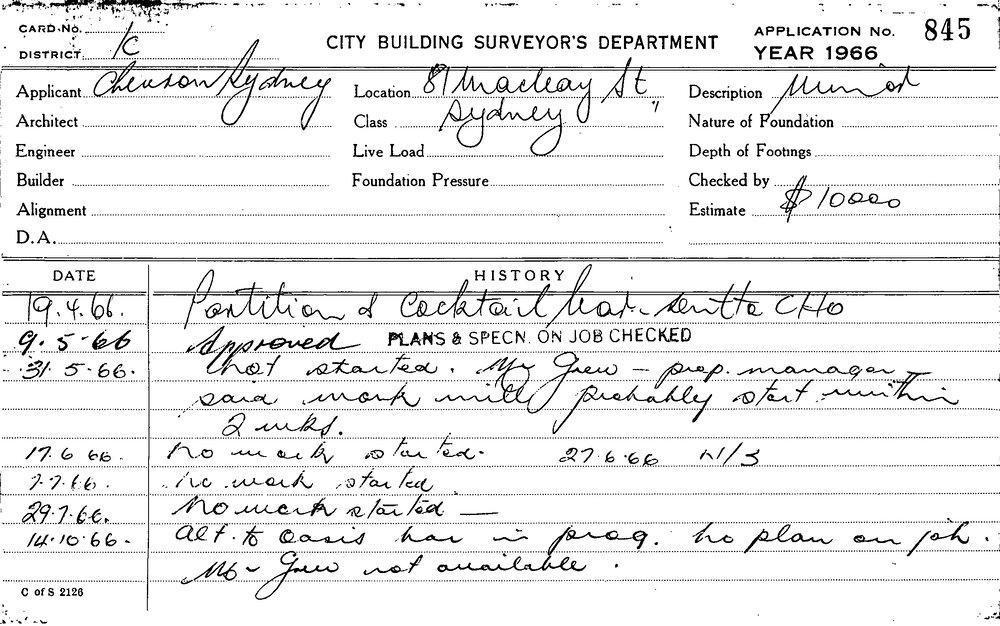 CARD No.
DISTRICT /C
CITY BUILDING SURVEYOR'S DEPARTMENT
APPLICATION No. 845
YEAR 1966
Applicant Chevron Sydney
Location 81 Macleay St
Description Minor
Architect
Class Sydney "
Nature of Foundation
Engineer
Live Load
Depth of Footings
Builder
Foundation Pressure
Checked by
Alignment
Estimate $ 10000
D.A.
DATE HISTORY
19.4.66. Partition & Cocktail bar. sent to CHO
9.5.66 Approved PLANS & SPECN. ON JOB CHECKED
31.5.66. Not started. Mr Grew - prop. manager
said work will probably start within
2 wks.
17.6 66. No work started. 27.6.66 N/S
7.7.66. No work started
29.7.66. No work started —
14.10.66. Alt. to Oasis bar in prog. No plan on job.
Mr Grew not available.
C of S 2126